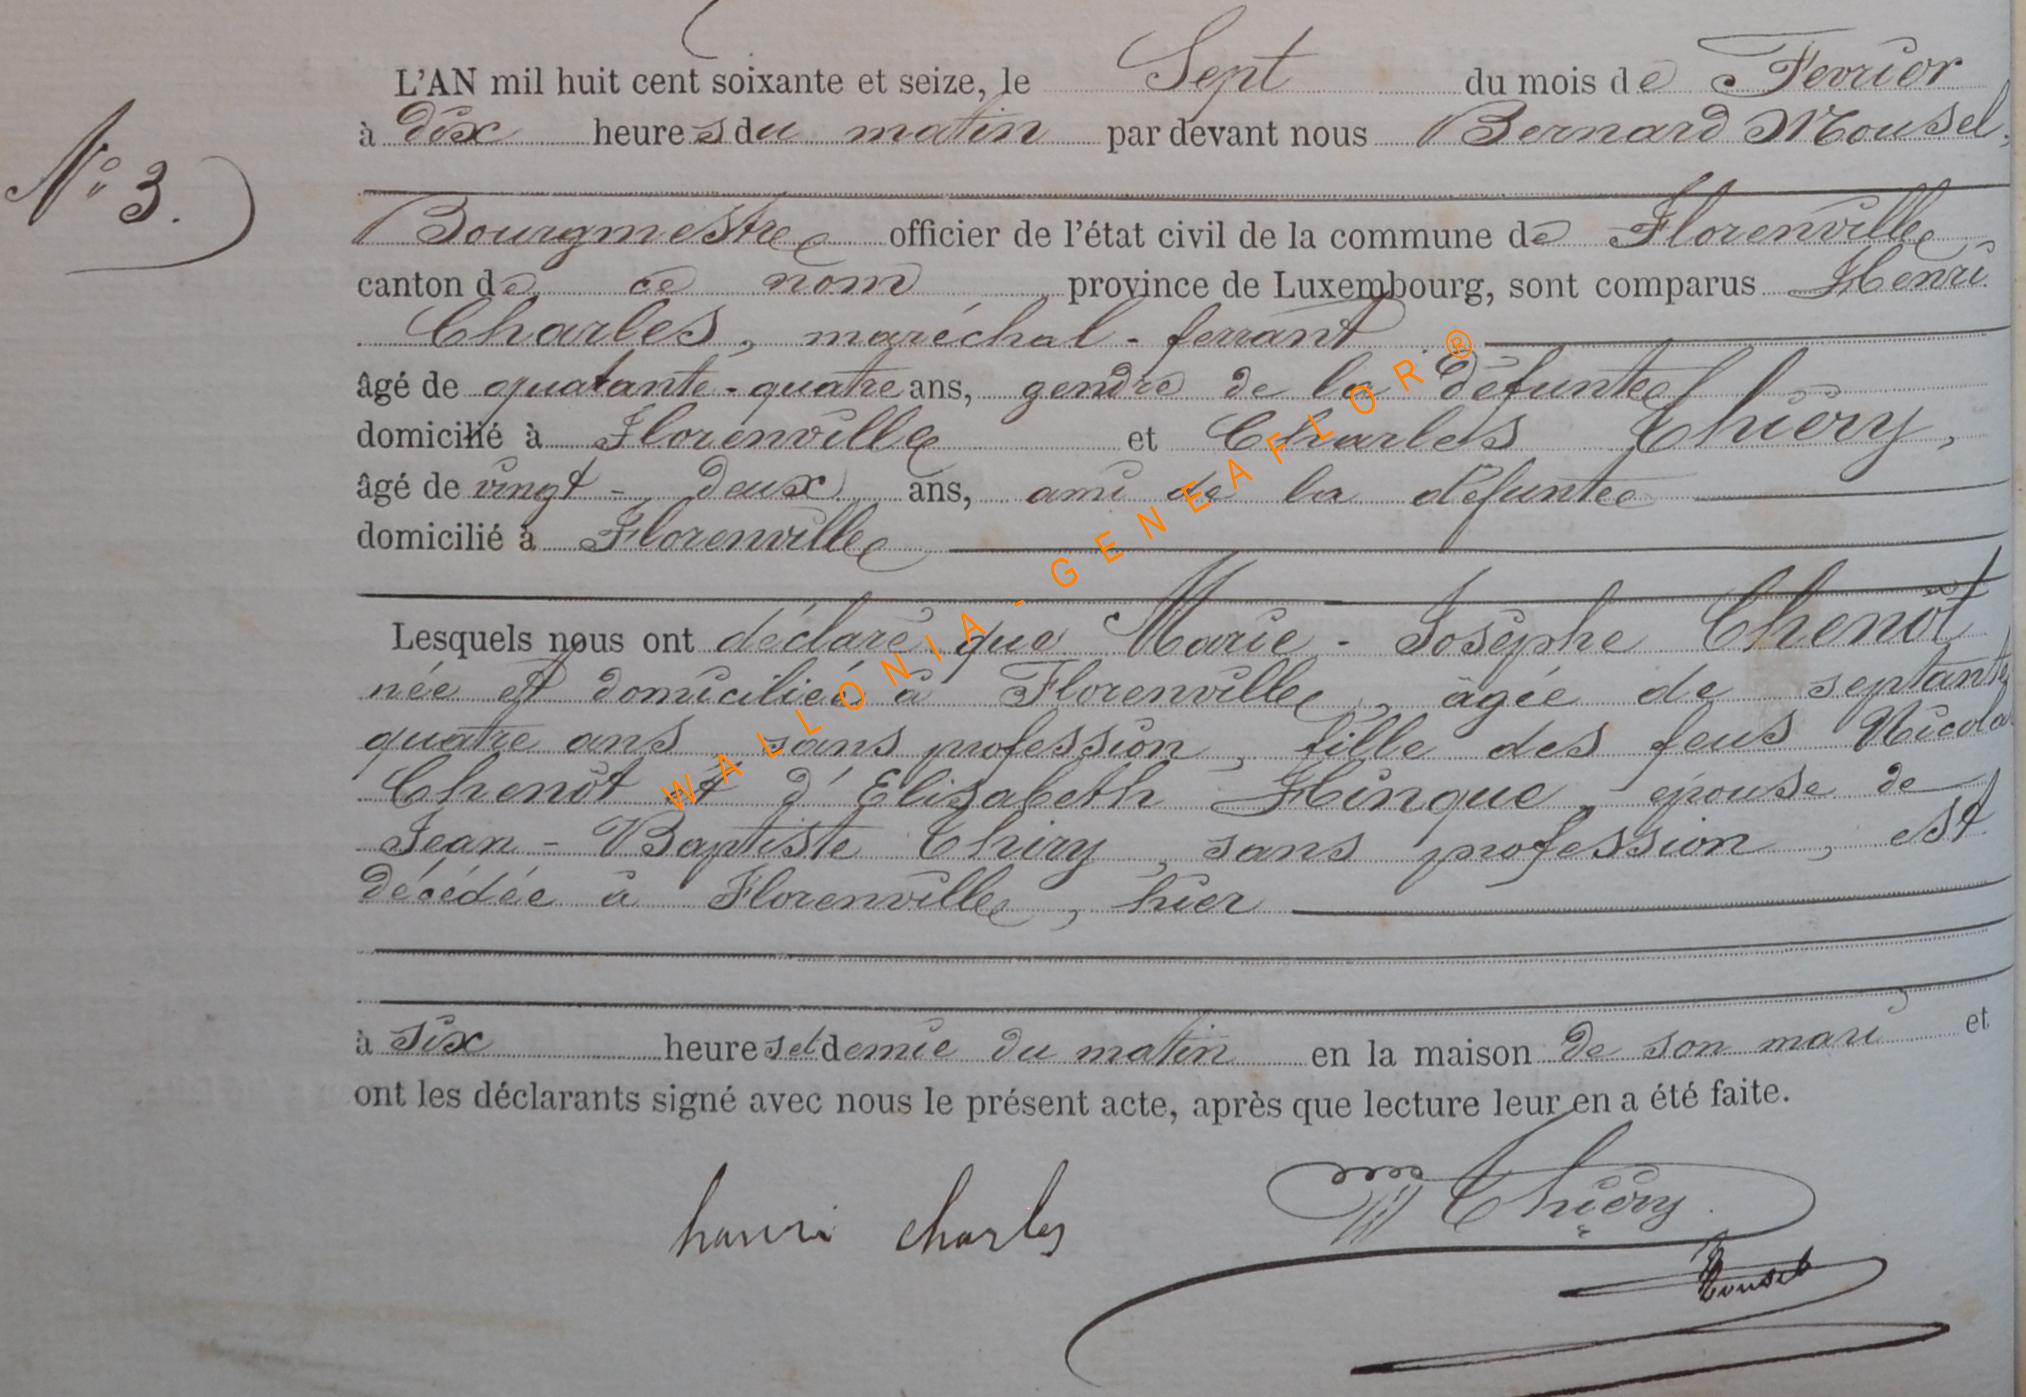 L'AN mil huit cent soixante et seize, le Sept du mois de Fevrier
à dix heures du matin par devant nous Bernard Mousel,
N° 3.
Bourgmestre officier de l'état civil de la commune de Florenville
canton de ce nom province de Luxembourg, sont comparus Henri
Charles, maréchal-ferrant
âgé de quatante-quatre ans, gendre de la défunte
domicilié à Florenville et Charles Thiéry,
âgé de vingt-deux ans, ami de la défunte
domicilié à Florenville
Lesquels nous ont déclaré que Marie-Josèphe Chenôt
née et domiciliée à Florenville, âgée de septante
quatre ans, sans profession, fille des feus Nicola
Chenôt et d'Elisabeth Hinque, épouse de
Jean-Baptiste Thiry, sans profession, est
décédée à Florenville, hier
à six heures et demie du matin en la maison de son mari et
ont les déclarants signé avec nous le présent acte, après que lecture leur en a été faite.
hanri charles Thiéry
Mousel
WALLONIA-GENEAFLOR®